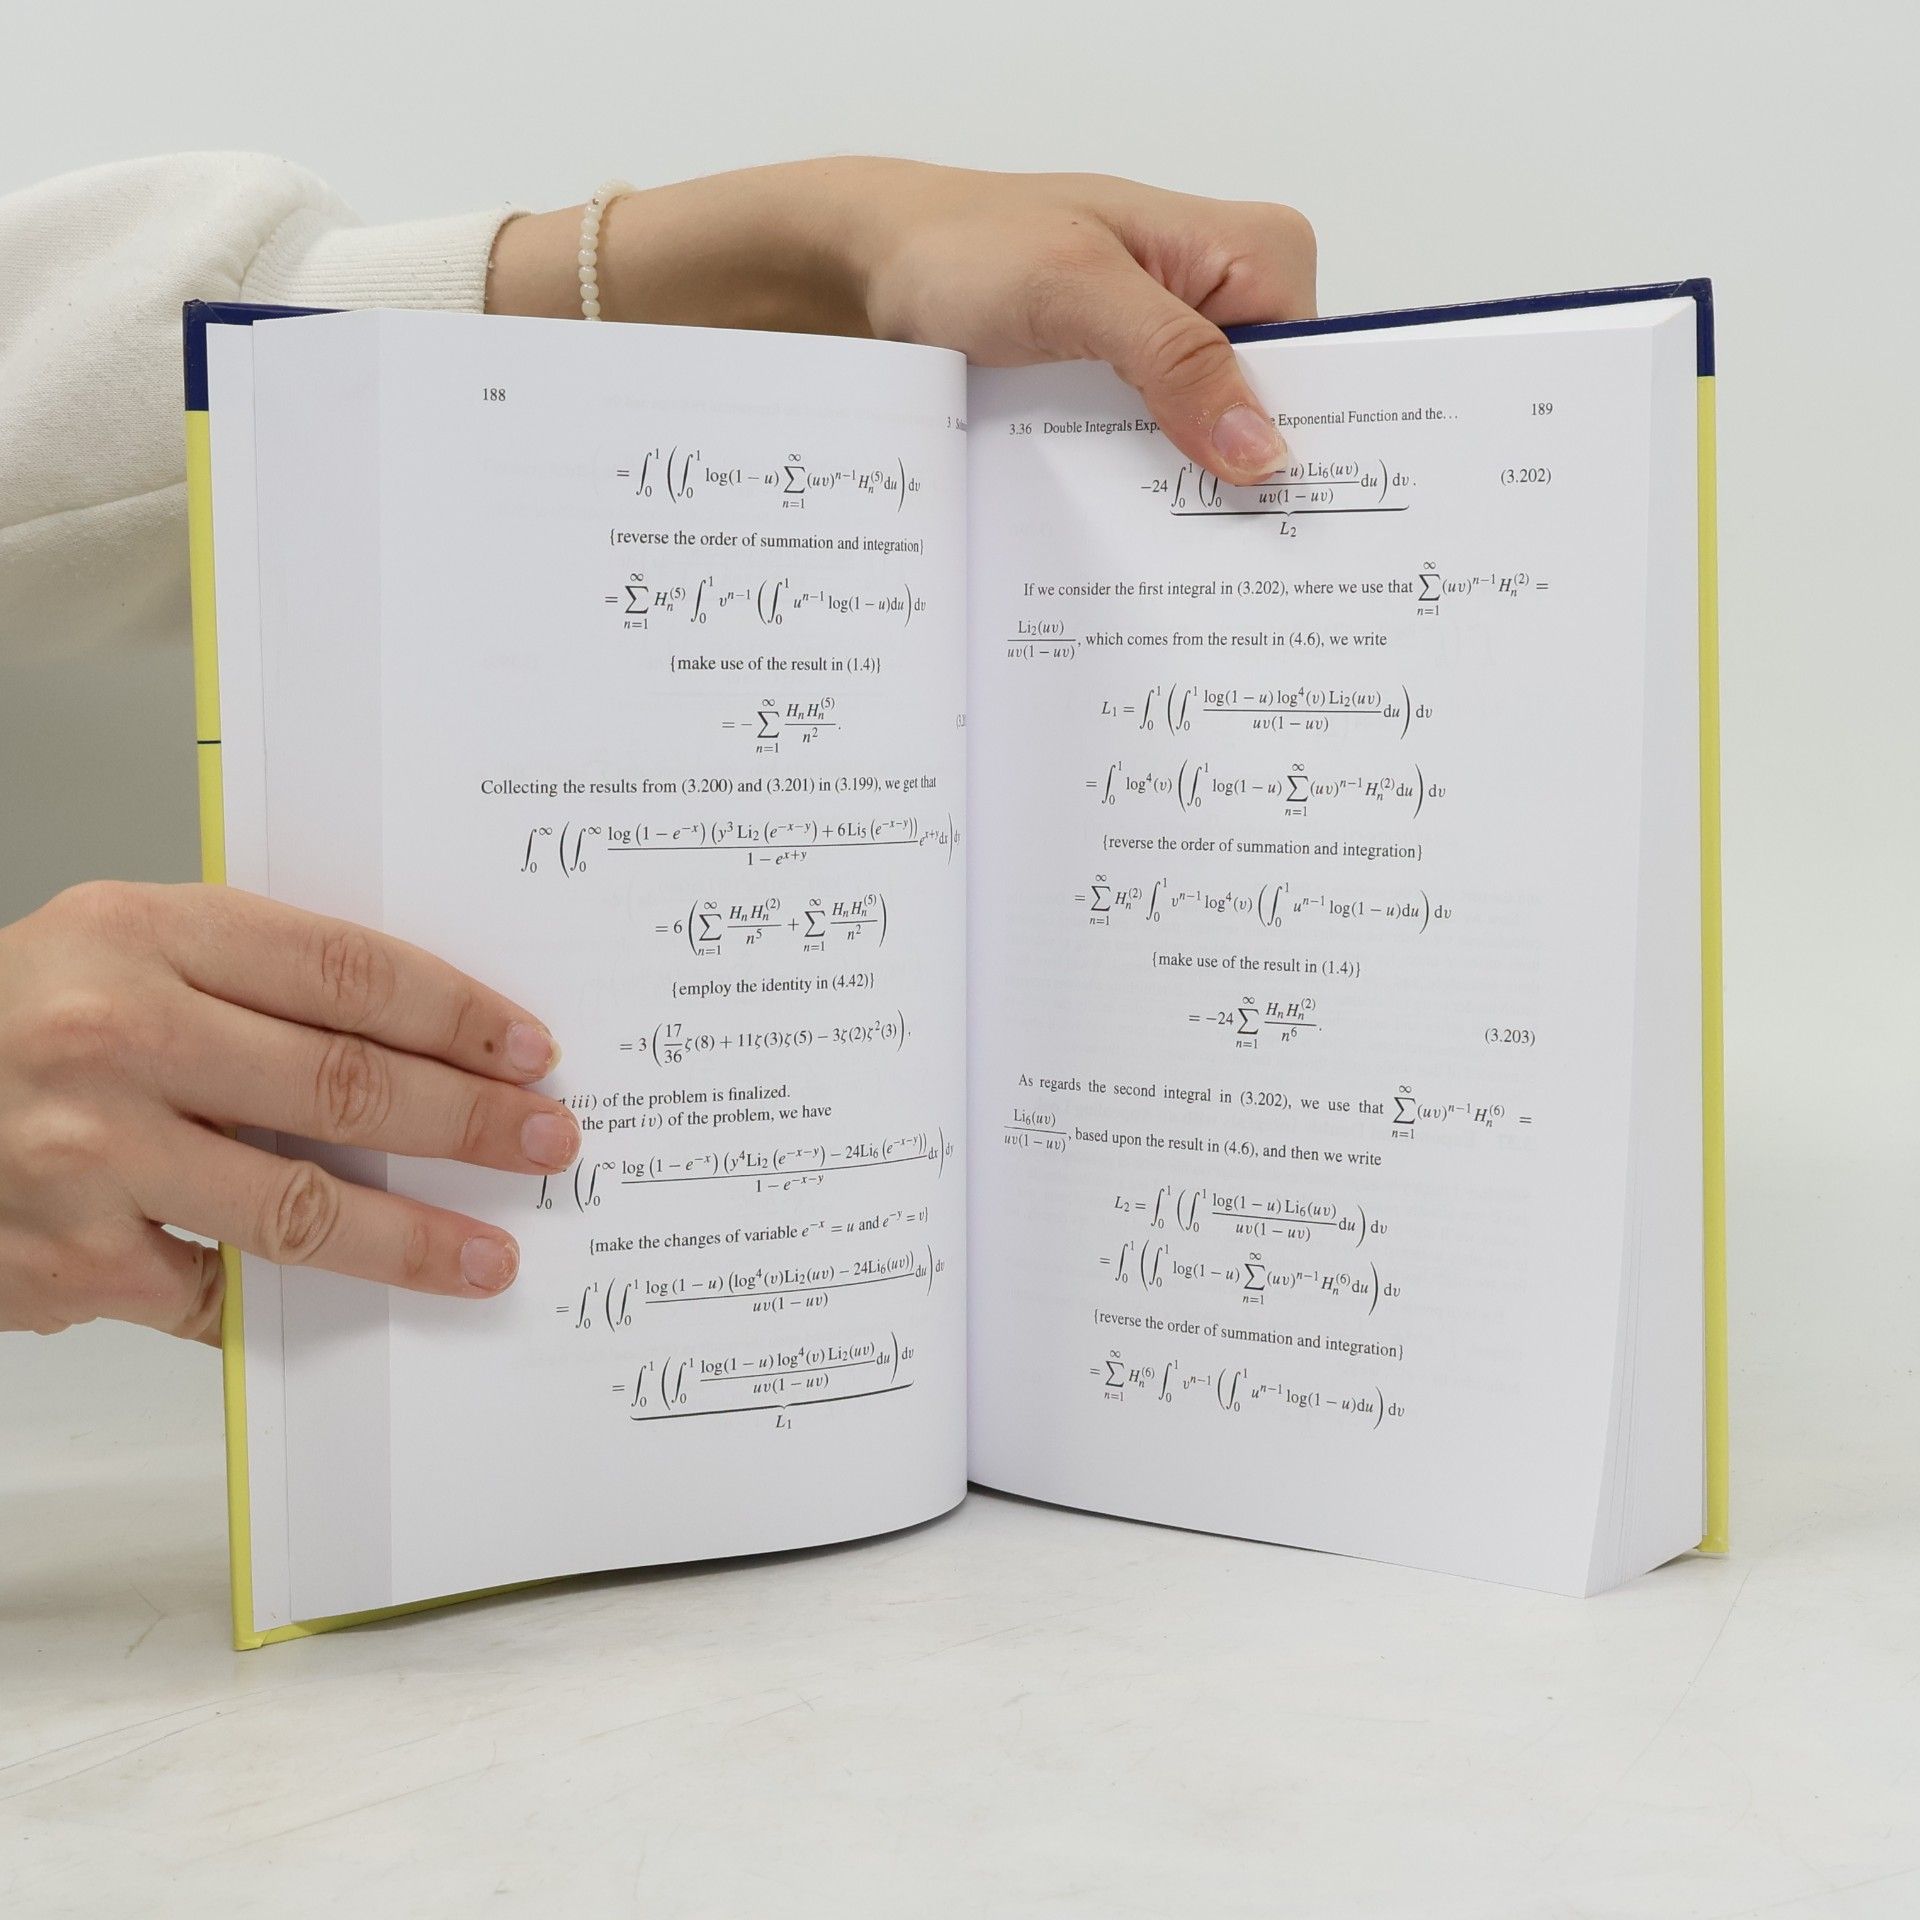 188
3
= ∫₀¹ (∫₀¹ log(1 − u) ∑_{n=1}^{∞} (uv)^{n−1} H_n^{(5)} du) dv
{reverse the order of summation and integration}
= ∑_{n=1}^{∞} H_n^{(5)} ∫₀¹ v^{n−1} (∫₀¹ u^{n−1} log(1 − u)du) dv
{make use of the result in (1.4)}
= − ∑_{n=1}^{∞} H_n H_n^{(5)} / n².
Collecting the results from (3.200) and (3.201) in (3.199), we get that
∫₀^∞ (∫₀^∞ log (1 − e^{−x}) (y³ Li₂ (e^{−x−y}) + 6 Li₅ (e^{−x−y})) / (1 − e^{x+y}) e^{x+y} dx) dy
= 6 (∑_{n=1}^{∞} H_n H_n^{(2)} / n⁵ + ∑_{n=1}^{∞} H_n H_n^{(5)} / n²)
{employ the identity in (4.42)}
= 3 (17/36 ζ(8) + 11ζ(3)ζ(5) − 3ζ(2)ζ²(3)).
iii) of the problem is finalized.
the part iv) of the problem, we have
∫₀ (∫₀^∞ log (1 − e^{−x}) (y⁴Li₂ (e^{−x−y}) − 24Li₆ (e^{−x−y})) / (1 − e^{−x−y}) dx) dy
{make the changes of variable e^{−x} = u and e^{−y} = v}
= ∫₀¹ (∫₀¹ log (1 − u) (log⁴(v)Li₂(uv) − 24Li₆(uv)) / (uv(1 − uv)) du) dv
= ∫₀¹ (∫₀¹ log(1 − u) log⁴(v) Li₂(uv) / (uv(1 − uv)) du) dv
L₁
3.36 Double Integrals Exponential Function and the... 189
−24 ∫₀¹ (∫₀ − u) Li₆(uv) / (uv(1 − uv)) du) dv. (3.202)
L₂
If we consider the first integral in (3.202), where we use that ∑_{n=1}^{∞} (uv)^{n−1} H_n^{(2)} =
Li₂(uv) / (uv(1 − uv)), which comes from the result in (4.6), we write
L₁ = ∫₀¹ (∫₀¹ log(1 − u) log⁴(v) Li₂(uv) / (uv(1 − uv)) du) dv
= ∫₀¹ log⁴(v) (∫₀¹ log(1 − u) ∑_{n=1}^{∞} (uv)^{n−1} H_n^{(2)} du) dv
{reverse the order of summation and integration}
= ∑_{n=1}^{∞} H_n^{(2)} ∫₀¹ v^{n−1} log⁴(v) (∫₀¹ u^{n−1} log(1 − u)du) dv
{make use of the result in (1.4)}
= −24 ∑_{n=1}^{∞} H_n H_n^{(2)} / n⁶. (3.203)
As regards the second integral in (3.202), we use that ∑_{n=1}^{∞} (uv)^{n−1} H_n^{(6)} =
Li₆(uv) / (uv(1 − uv)), based upon the result in (4.6), and then we write
L₂ = ∫₀¹ (∫₀¹ log(1 − u) Li₆(uv) / (uv(1 − uv)) du) dv
= ∫₀¹ (∫₀¹ log(1 − u) ∑_{n=1}^{∞} (uv)^{n−1} H_n^{(6)} du) dv
{reverse the order of summation and integration}
= ∑_{n=1}^{∞} H_n^{(6)} ∫₀¹ v^{n−1} (∫₀¹ u^{n−1} log(1 − u)du) dv